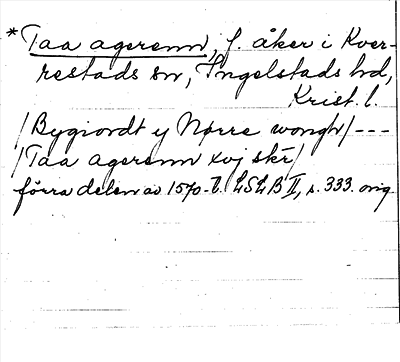 *Taa agerenn, f. åker i Kver-
restads sn, Ingelstads hd,
Krist. l.
/Bygiordt y Nørre wongh/---
/Taa agerenn xvj skr/
förra delen av 1570-t. LSLB II, s. 333. orig.